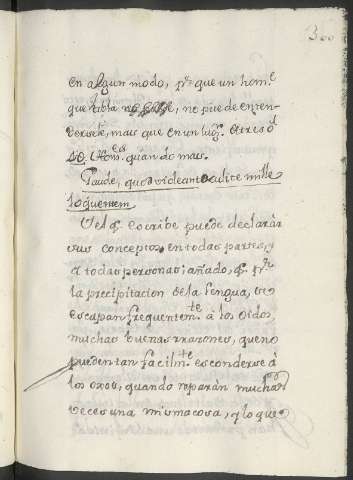 300
en algun modo, pr. que un homb.e
que habla no puede enten-
derse, mas que en un lug.r
40. quando mas.
Gaude, quod videant oculi te mille
loquentem
Y el q. escribe puede declarar
sus conceptos en todas partes, y
a todas personas: añado, q. pr.
la precipitacion de la lengua, se
escapan frequentem.te a los oidos
muchas buenas rrazones, que no
pueden tan facilm.te esconderse à
los oxos, quando reparan muchas
veces una misma cosa, y lo que